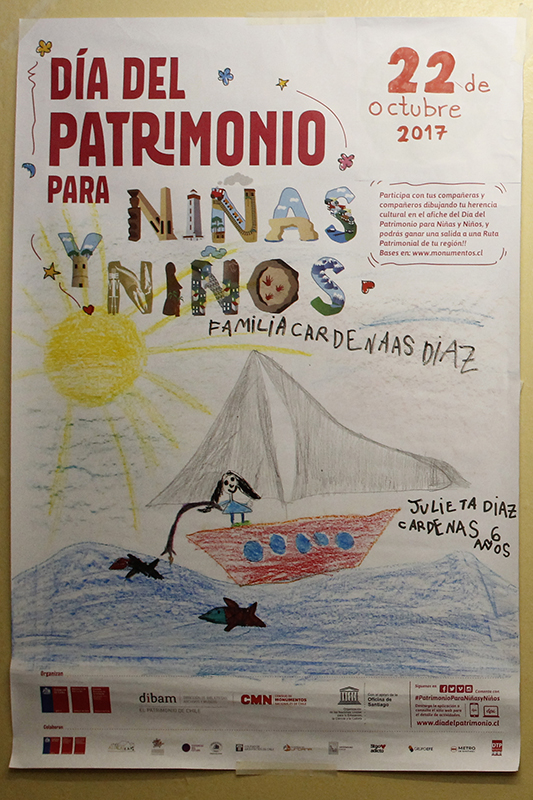 DÍA DEL
PATRIMONIO
PARA NIÑAS
Y NIÑOS
22 de
octubre
2017
Participa con tus compañeras y
compañeros dibujando tu herencia
cultural en el afiche del Día del
Patrimonio para Niñas y Niños, y
podrás ganar una salida a una Ruta
Patrimonial de tu región!!
Bases en: www.monumentos.cl
FAMILIA CARDENAAS DIAZ
JULIETA DIAZ
CARDENAS 6
AÑOS
Organizan
dibam
EL PATRIMONIO DE CHILE
CMN
MONUMENTOS
UNESCO
Oficina de
Santiago
Síguenos en:
#PatrimonioParaNiñasyNiños
Descarga la aplicación o
consulta el sitio web para
el detalle de actividades
www.diadelpatrimonio.cl
Colaboran
GRUPO EFE
METRO
DTP